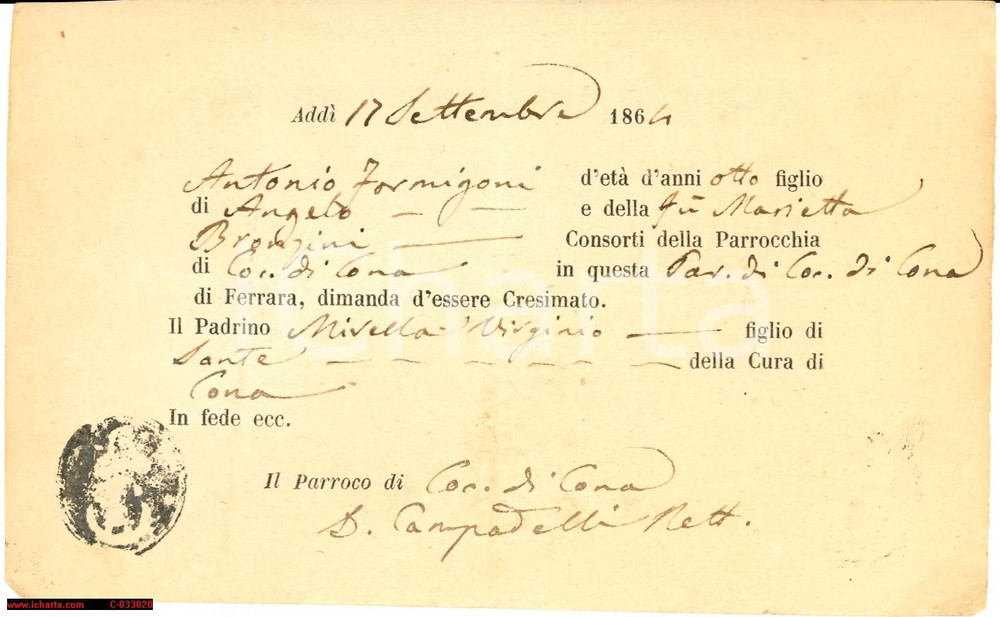 Addì 17 Settembre 1864
Antonio Formigoni d'età d'anni otto figlio
di Angelo — — e della fù Marietta
Bronzini — Consorti della Parrocchia
di Coc. di Cona in questa Par. di Coc. di Cona
di Ferrara, dimanda d'essere Cresimato.
Il Padrino Mirella Virginio — figlio di
Sante — — — — — — della Cura di
Cona
In fede ecc.
Il Parroco di Coc. di Cona
D. Campadelli Rett.
icharta
www.icharta.com C-033020